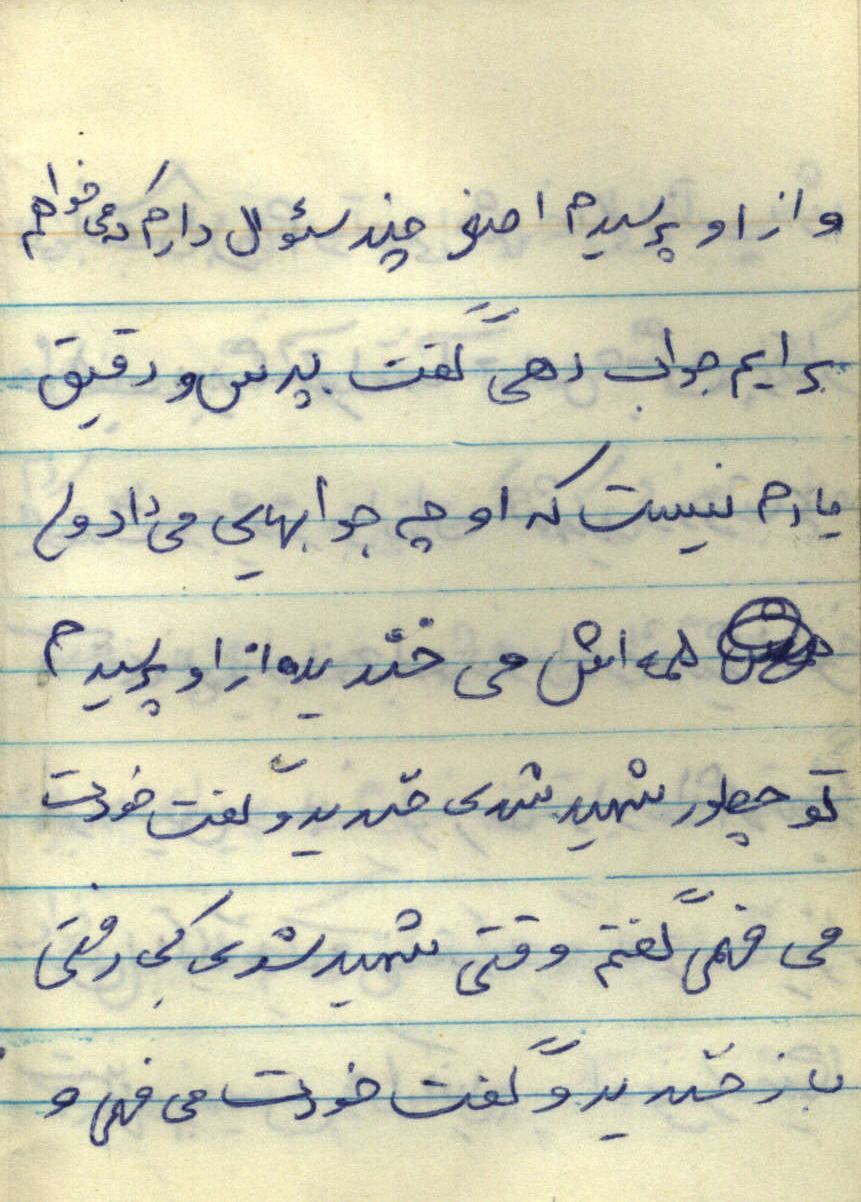 و از او پرسیدم اصغر چند سئوال دارم که می خواهم
برایم جواب دهی گفت بپرس و دقیق
یادم نیست که او چه جوابهایی می داد ولی
همه اش می خندید از او پرسیدم
تو چطور شهید شدی خندید و گفت خودت
می فهمی گفتم وقتی شهید شدی کجا رفتی
باز خندید و گفت خودت می فهمی و